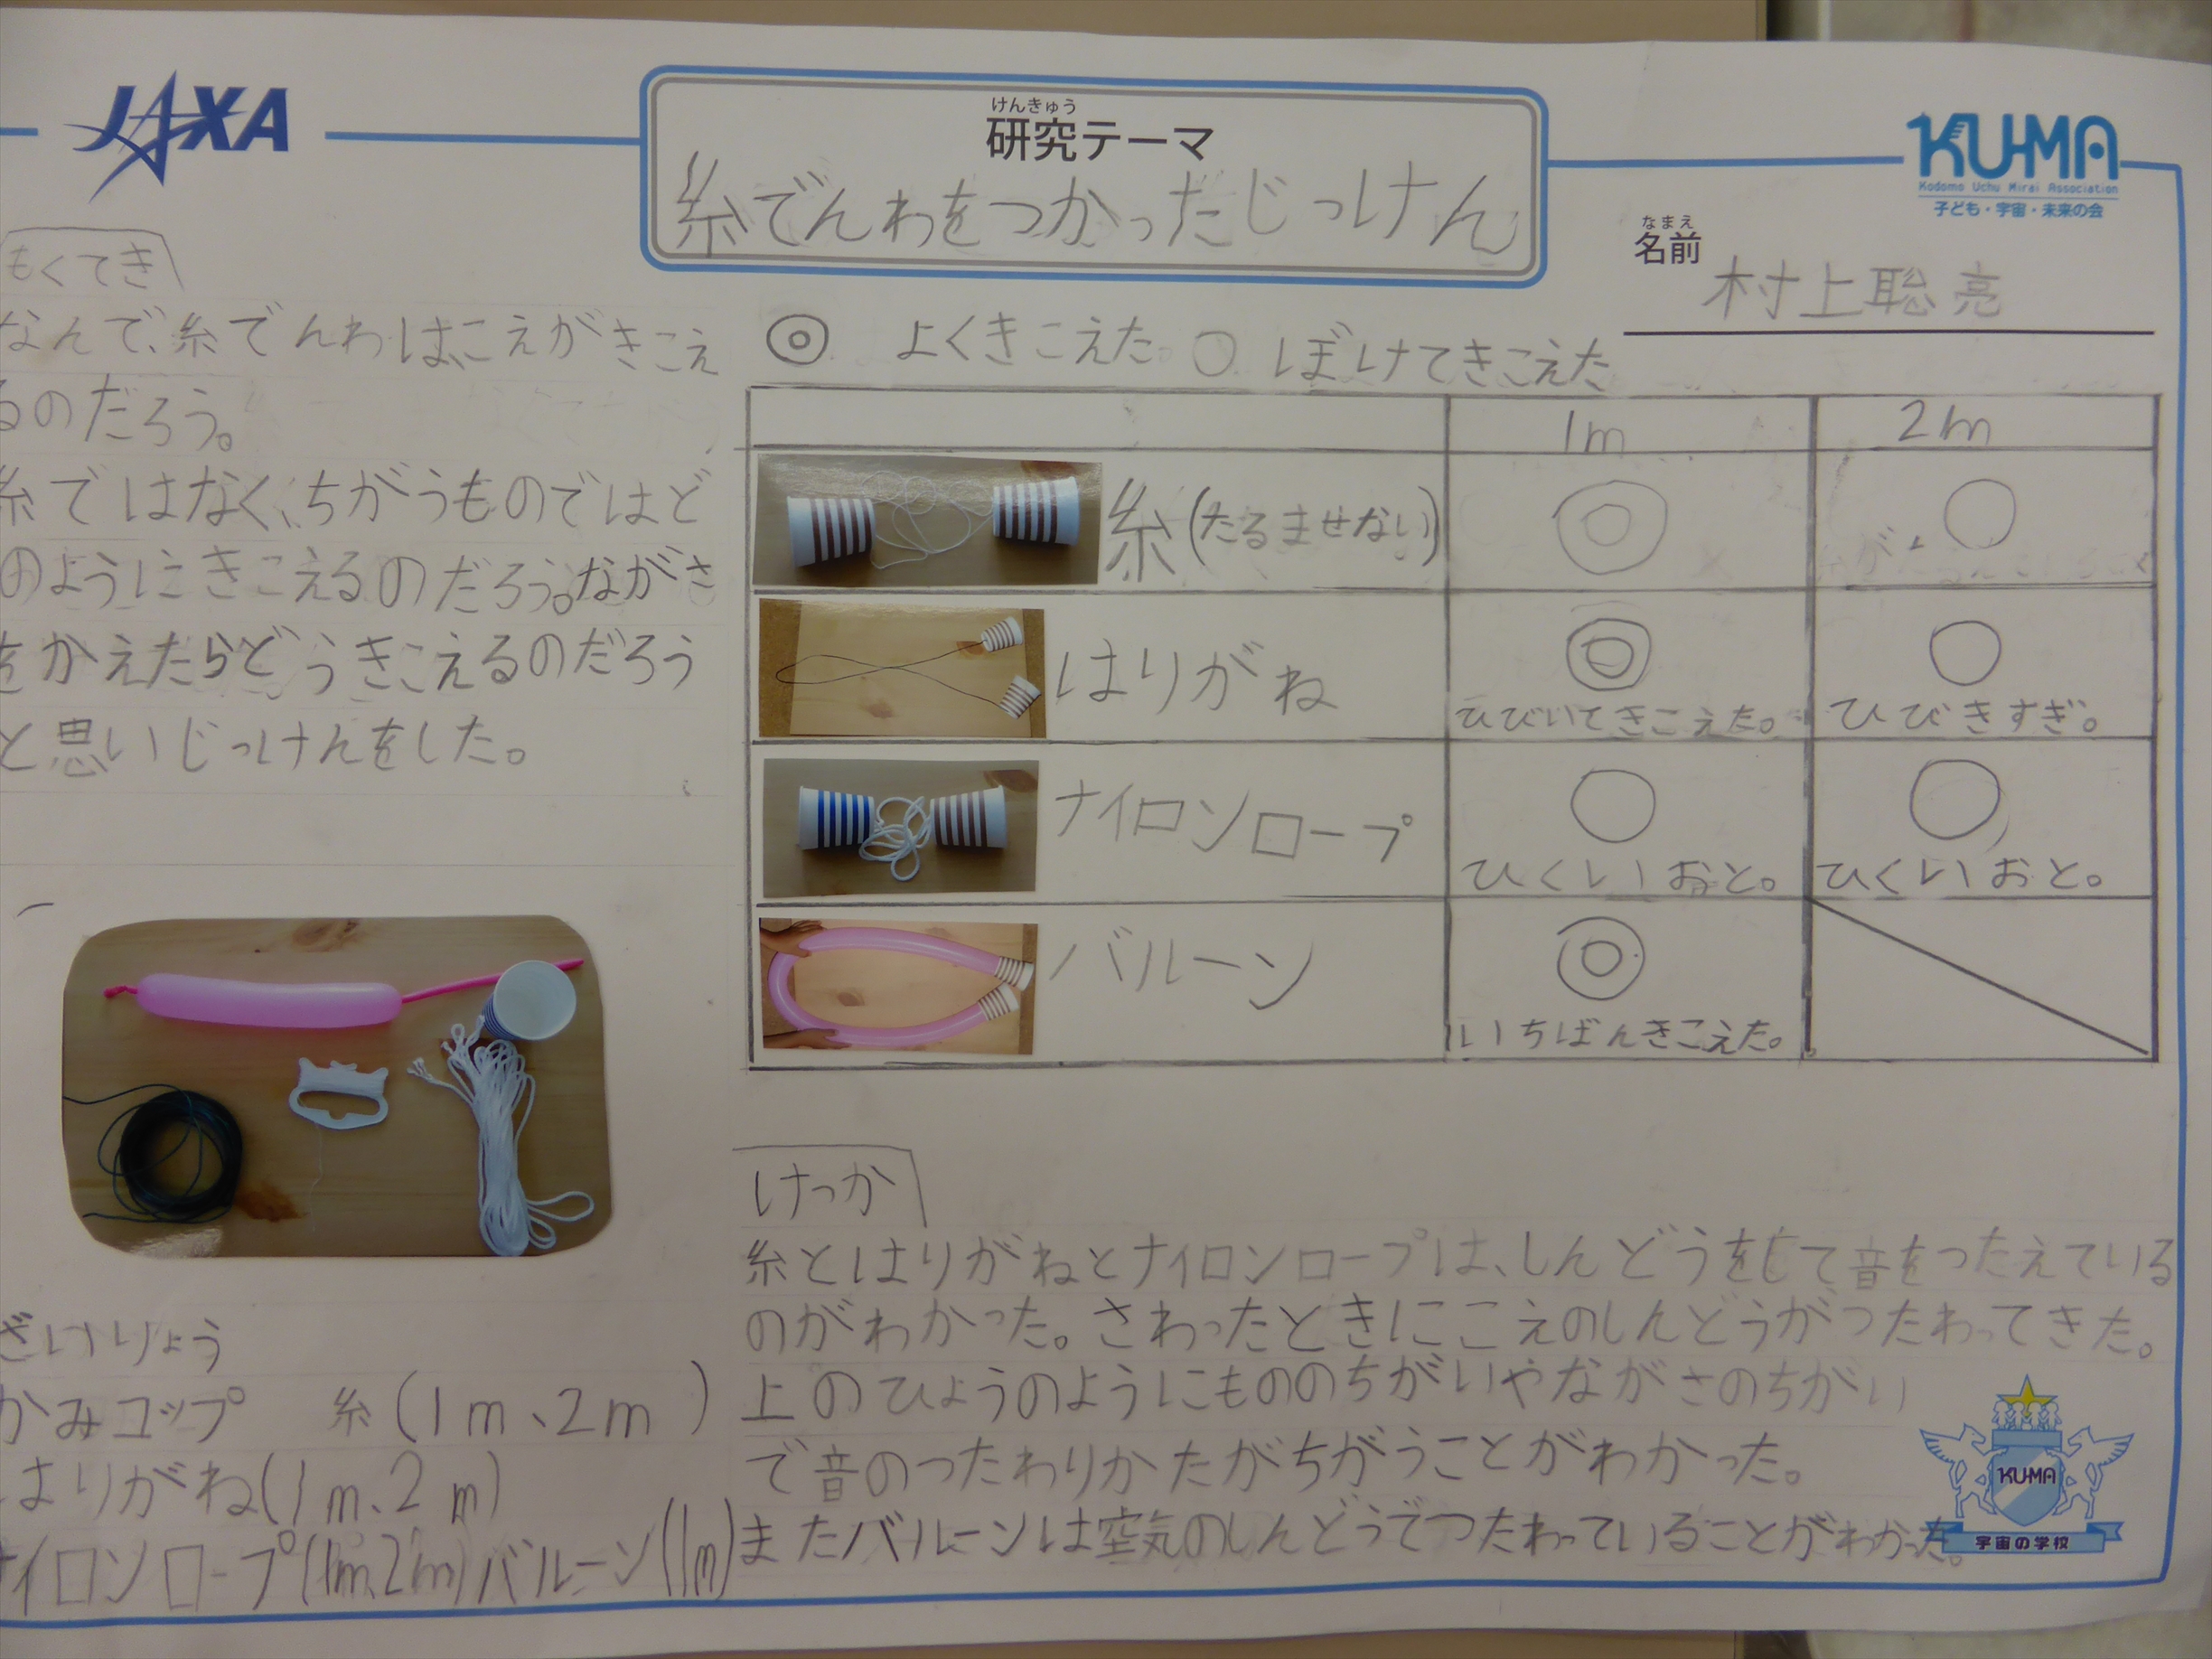 JAXA
けんきゅう
研究テーマ
糸でんわをつかったじっけん
KU-MA
Kodomo Uchu Mirai Association
子ども・宇宙・未来の会
なまえ
名前
村上聡亮
もくてき
なんで、糸でんわは、こえがきこえ
るのだろう。
糸ではなく、ちがうものではど
のようにきこえるのだろう。ながさ
をかえたらどうきこえるのだろう
と思いじっけんをした。
ざいりょう
かみコップ 糸(1m、2m)
はりがね(1m、2m)
ナイロンロープ(1m、2m)バルーン(1m)
◎ よくきこえた ○ ぼけてきこえた
1m 2m
糸(たるませない) ◎ ○
はりがね ◎ ○
ひびいてきこえた。 ひびきすぎ。
ナイロンロープ ○ ○
ひくいおと。 ひくいおと。
バルーン ◎
いちばんきこえた。
けっか
糸とはりがねとナイロンロープは、しんどうをして音をつたえている
のがわかった。さわったときにこえのしんどうがつたわってきた。
上のひょうのようにもののちがいやながさのちがい
で音のつたわりかたがちがうことがわかった。
またバルーンは空気のしんどうでつたわっていることがわかった。
KU-MA
宇宙の学校